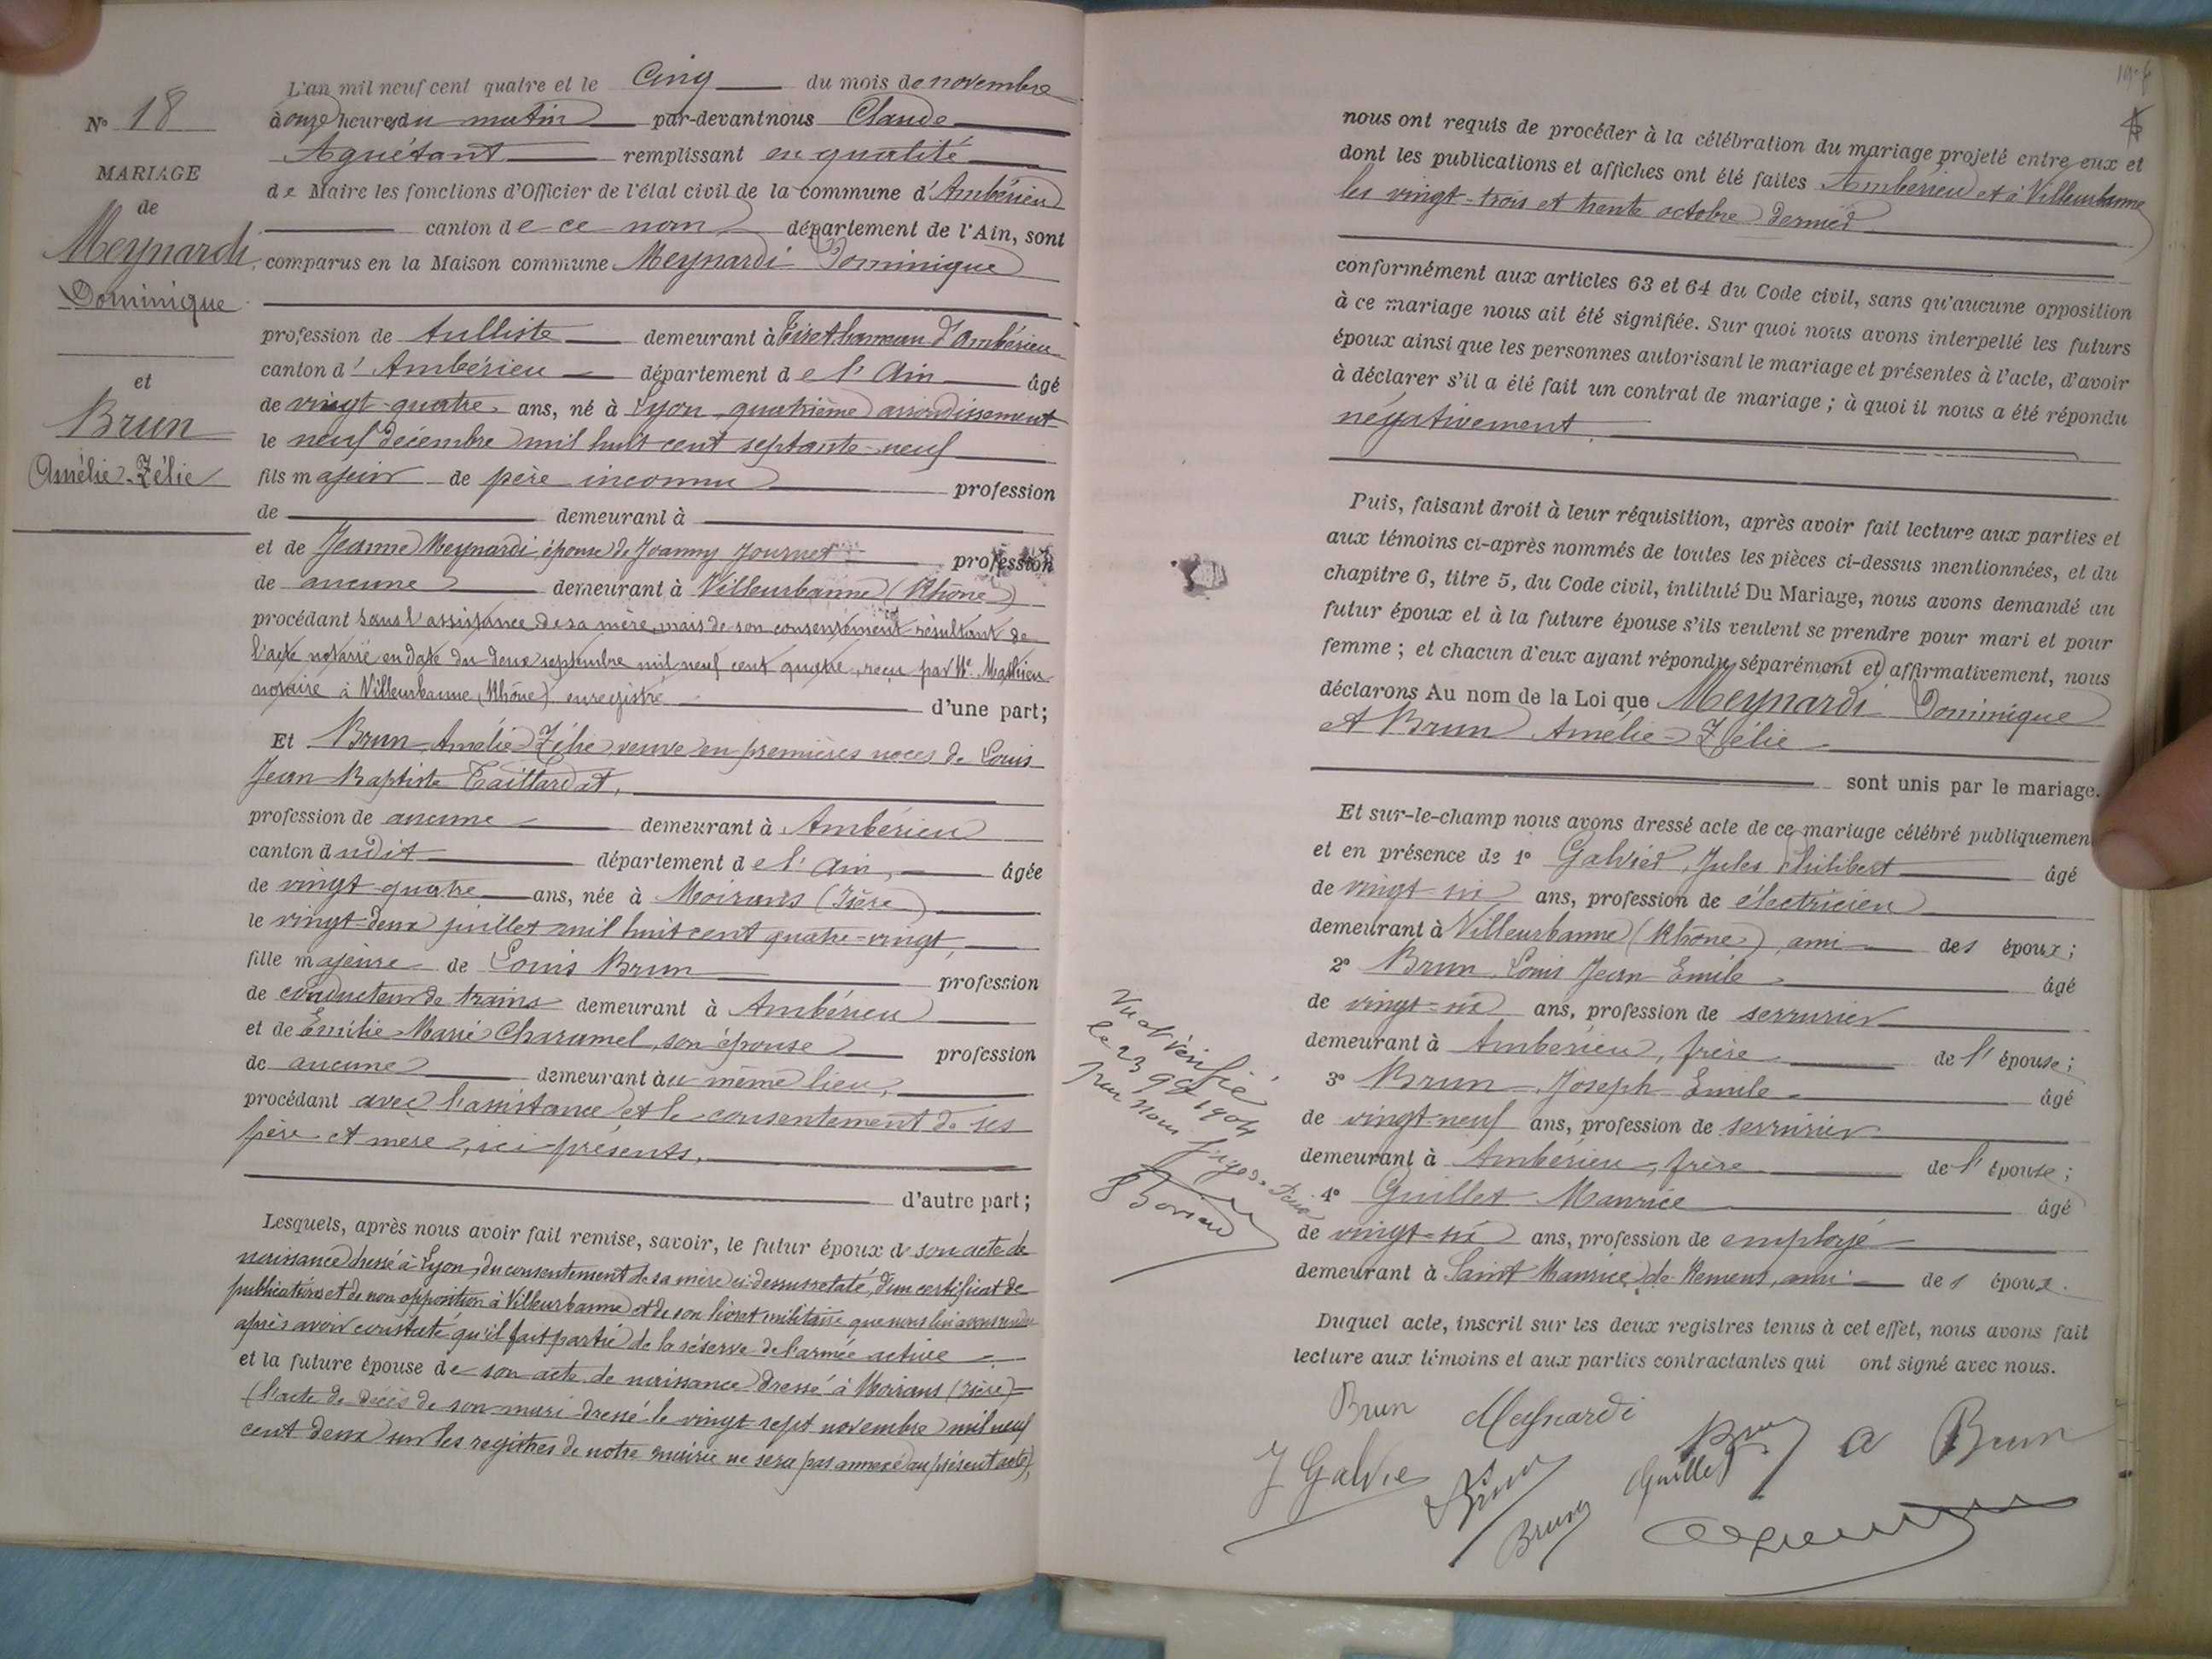 N° 18
MARIAGE
de
Meynardi
Dominique
et
Brun
Amélie-Zélie
L'an mil neuf cent quatre et le Cinq du mois de novembre
à onze heures du matin par-devant nous Claude
Aguétant remplissant en qualité
de Maire les fonctions d'Officier de l'état civil de la commune d'Ambérieu
canton de ce nom département de l'Ain, sont
comparus en la Maison commune Meynardi Dominique
profession de tulliste demeurant à Tiret hameau d'Ambérieu
canton d'Ambérieu département de l'Ain âgé
de vingt-quatre ans, né à Lyon quatrième arrondissement
le neuf décembre mil huit cent septante-neuf
fils majeur de père inconnu profession
de demeurant à
et de Jeanne Meynardi épouse de Joanny Journet profession
de aucune demeurant à Villeurbanne (Rhône)
procédant sans l'assistance de sa mère, mais de son consentement résultant de
l'acte notarié en date du deux septembre mil neuf cent quatre, reçu par Me Mathieu
notaire à Villeurbanne (Rhône) enregistré d'une part;
Et Brun Amélie Zélie veuve en premières noces de Louis
Jean Baptiste Taillardat,
profession de aucune demeurant à Ambérieu
canton dudit département de l'Ain, âgée
de vingt-quatre ans, née à Moirans (Isère)
le vingt-deux juillet mil huit cent quatre-vingt,
fille majeure de Louis Brun profession
de conducteur de trains demeurant à Ambérieu
et de Emilie Marie Charamel, son épouse profession
de aucune demeurant au même lieu,
procédant avec l'assistance et le consentement de ses
père et mère, ici présents.
d'autre part;
Lesquels, après nous avoir fait remise, savoir, le futur époux de son acte de
naissance dressé à Lyon, du consentement de sa mère ci-dessus relaté, d'un certificat de
publications et de non opposition à Villeurbanne et de son livret militaire que nous lui avons rendu
après avoir constaté qu'il fait partie de la réserve de l'armée active
et la future épouse de son acte de naissance dressé à Moirans (Isère)
(l'acte de décès de son mari dressé le vingt sept novembre mil neuf
cent deux sur les registres de notre mairie ne sera pas annexé au présent acte),
nous ont requis de procéder à la célébration du mariage projeté entre eux et
dont les publications et affiches ont été faites Ambérieu et à Villeurbanne
les vingt-trois et trente octobre dernier
conformément aux articles 63 et 64 du Code civil, sans qu'aucune opposition
à ce mariage nous ait été signifiée. Sur quoi nous avons interpellé les futurs
époux ainsi que les personnes autorisant le mariage et présentes à l'acte, d'avoir
à déclarer s'il a été fait un contrat de mariage ; à quoi il nous a été répondu
négativement.
Puis, faisant droit à leur réquisition, après avoir fait lecture aux parties et
aux témoins ci-après nommés de toutes les pièces ci-dessus mentionnées, et du
chapitre 6, titre 5, du Code civil, intitulé Du Mariage, nous avons demandé au
futur époux et à la future épouse s'ils veulent se prendre pour mari et pour
femme ; et chacun d'eux ayant répondu séparément et affirmativement, nous
déclarons Au nom de la Loi que Meynardi Dominique
et Brun Amélie Zélie
sont unis par le mariage.
Et sur-le-champ nous avons dressé acte de ce mariage célébré publiquemen
et en présence de 1° Galvier, Jules Philibert âgé
de vingt-six ans, profession de électricien
demeurant à Villeurbanne (Rhône), ami des époux;
2° Brun Louis Jean Emile âgé
de vingt-six ans, profession de serrurier
demeurant à Ambérieu, frère de l'épouse;
3° Brun Joseph Emile âgé
de vingt-neuf ans, profession de serrurier
demeurant à Ambérieu, frère de l'épouse;
4° Guillet Maurice âgé
de vingt-six ans, profession de employé
demeurant à Saint Maurice de Remens, ami des époux.
Duquel acte, inscrit sur les deux registres tenus à cet effet, nous avons fait
lecture aux témoins et aux parties contractantes qui ont signé avec nous.
Vu et vérifié
le 23 9bre 1904
par nous Juge de
Brun Meynardi Brun a Brun
J Galvie Brun Guillet
Brun